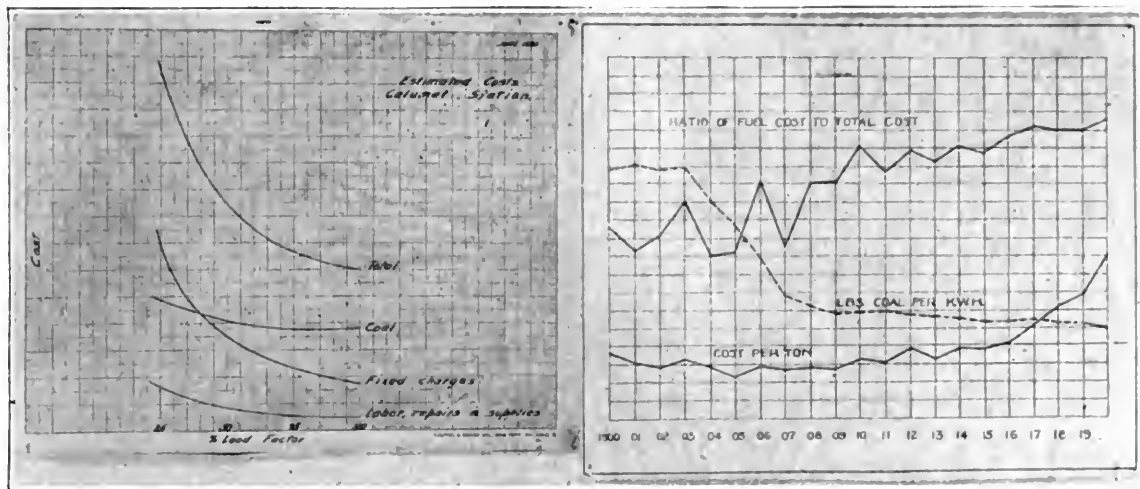 Estimated Costs
Calumet Station
Cost
Total
Coal
Fixed charges
Labor, repairs & supplies
25 50 75 100
% Load Factor
RATIO OF FUEL COST TO TOTAL COST
LBS COAL PER K.W.H.
COST PER TON
1900 01 02 03 04 05 06 07 08 09 10 11 12 13 14 15 16 17 18 19